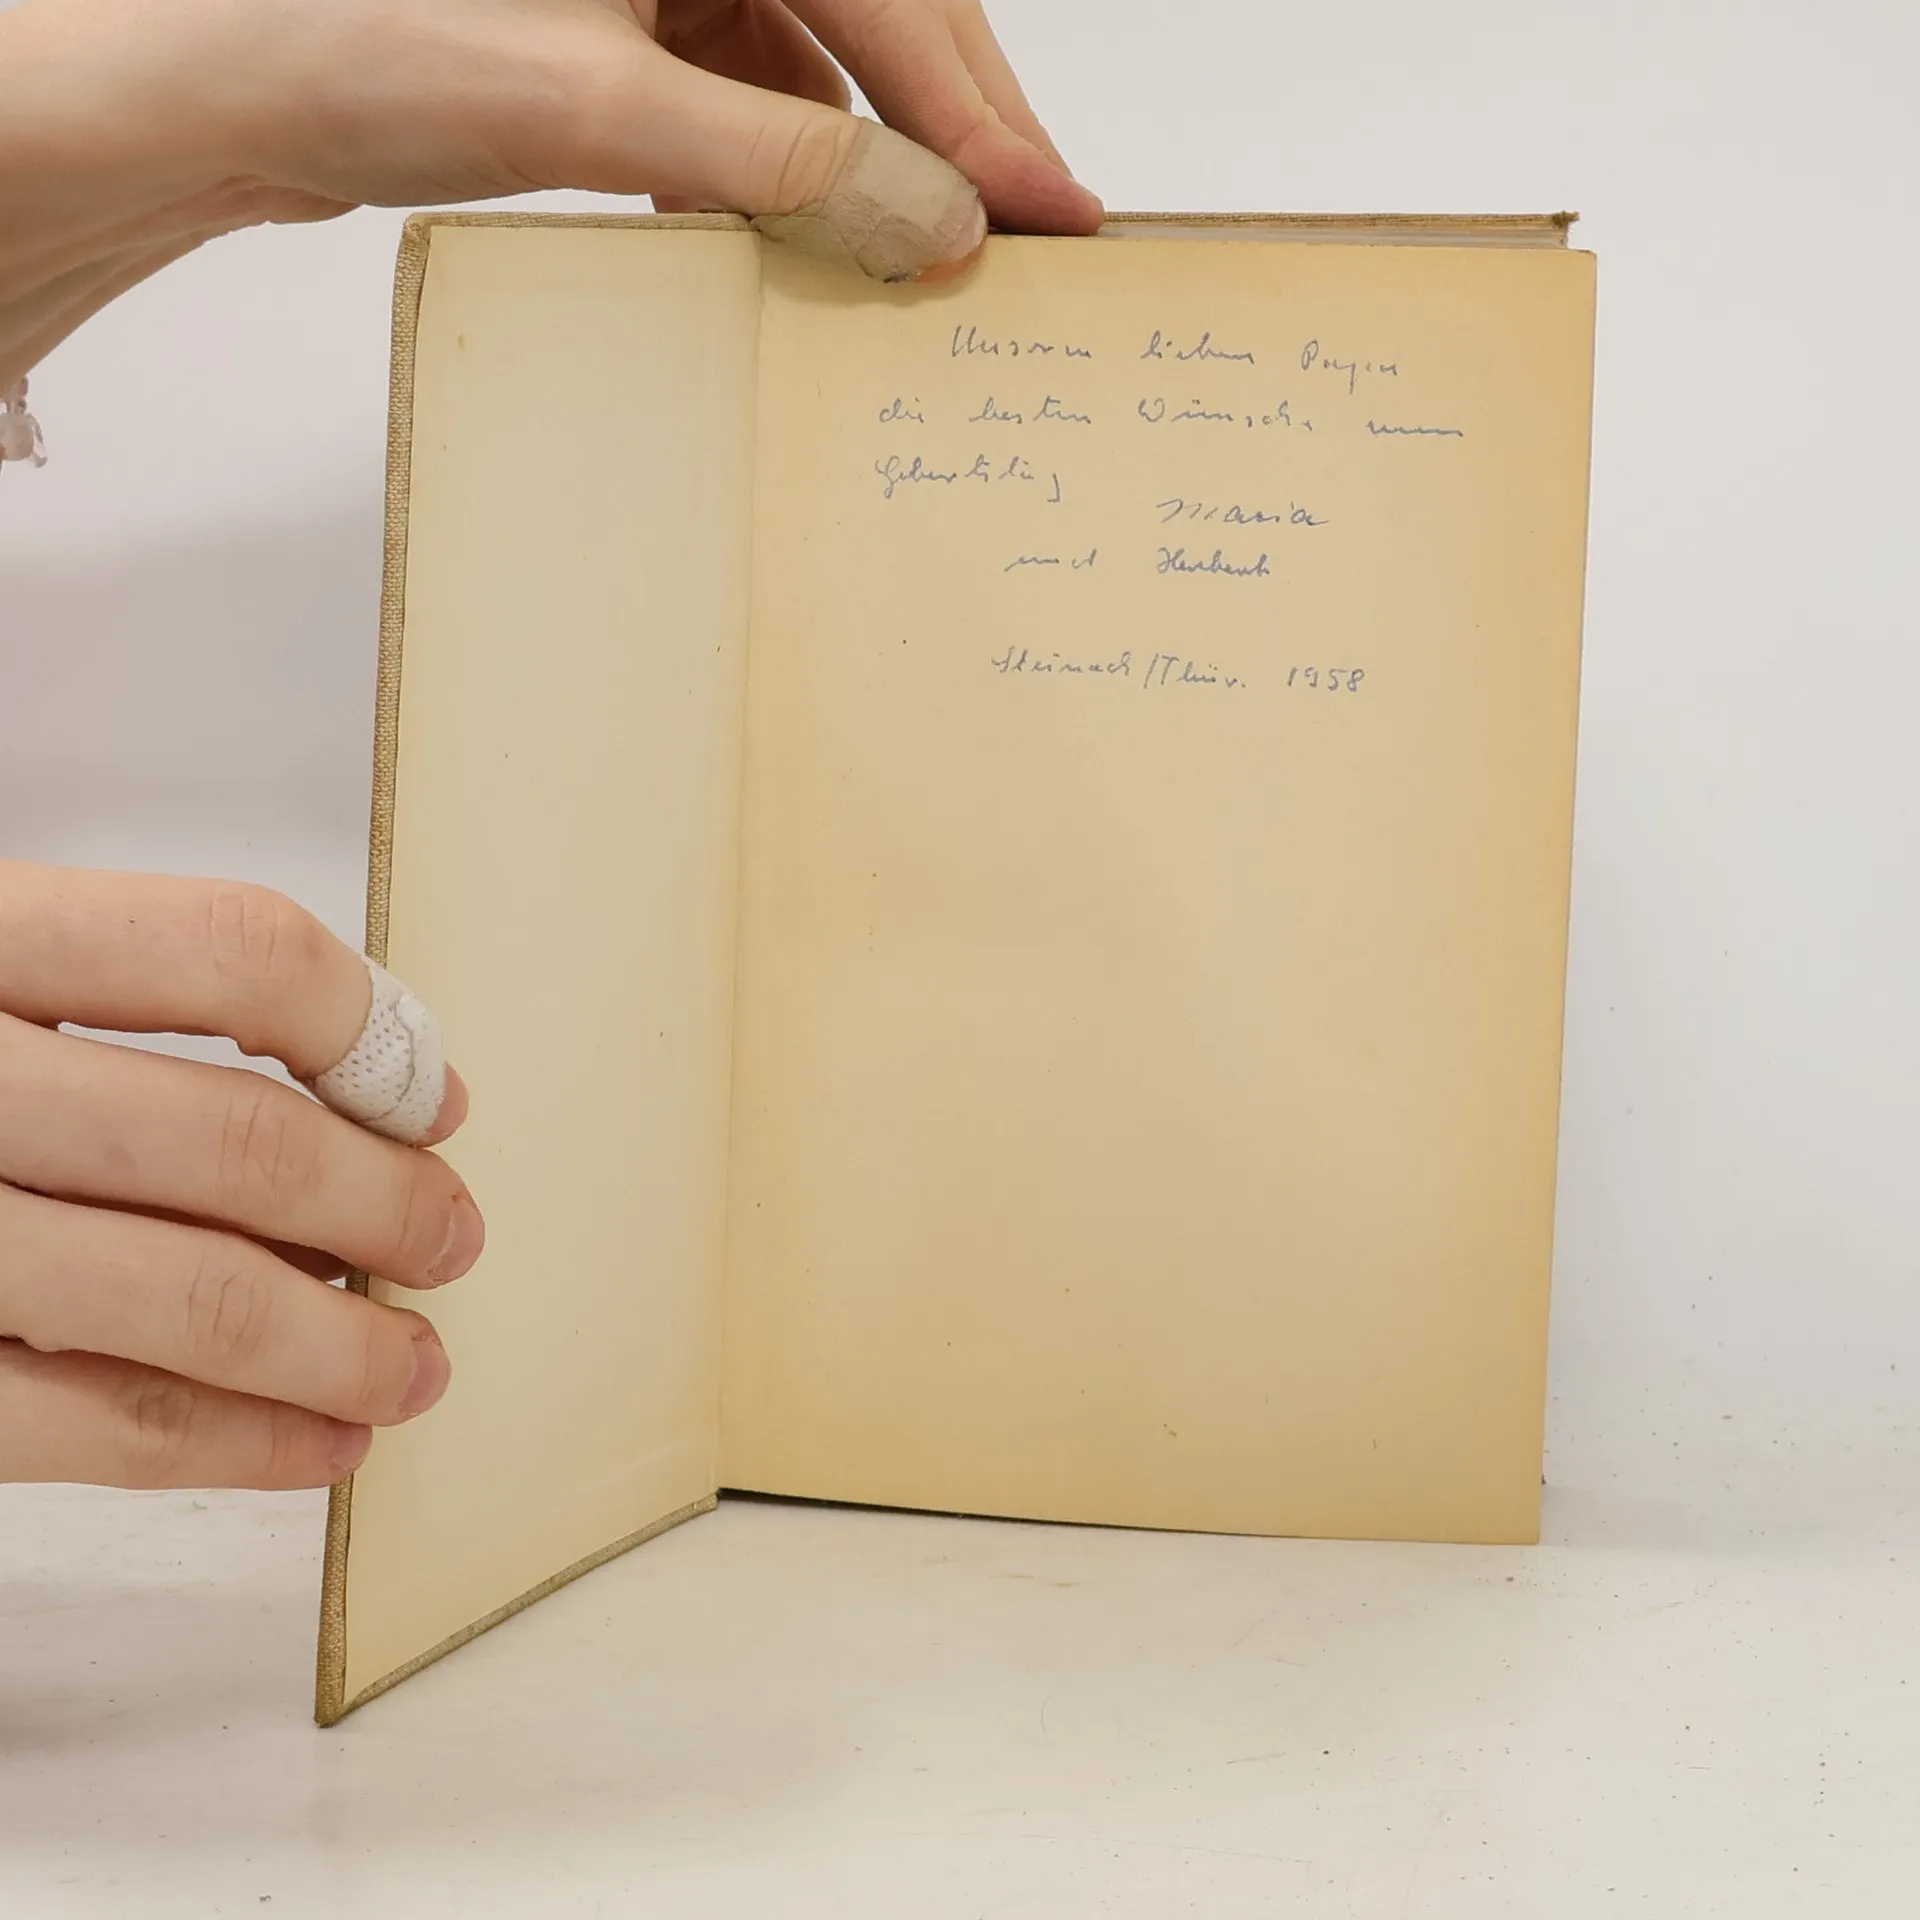 Unserem lieben Papa
die besten Wünsche zum
Geburtstag
Maria
und Herbert
Steinach/Thür. 1958